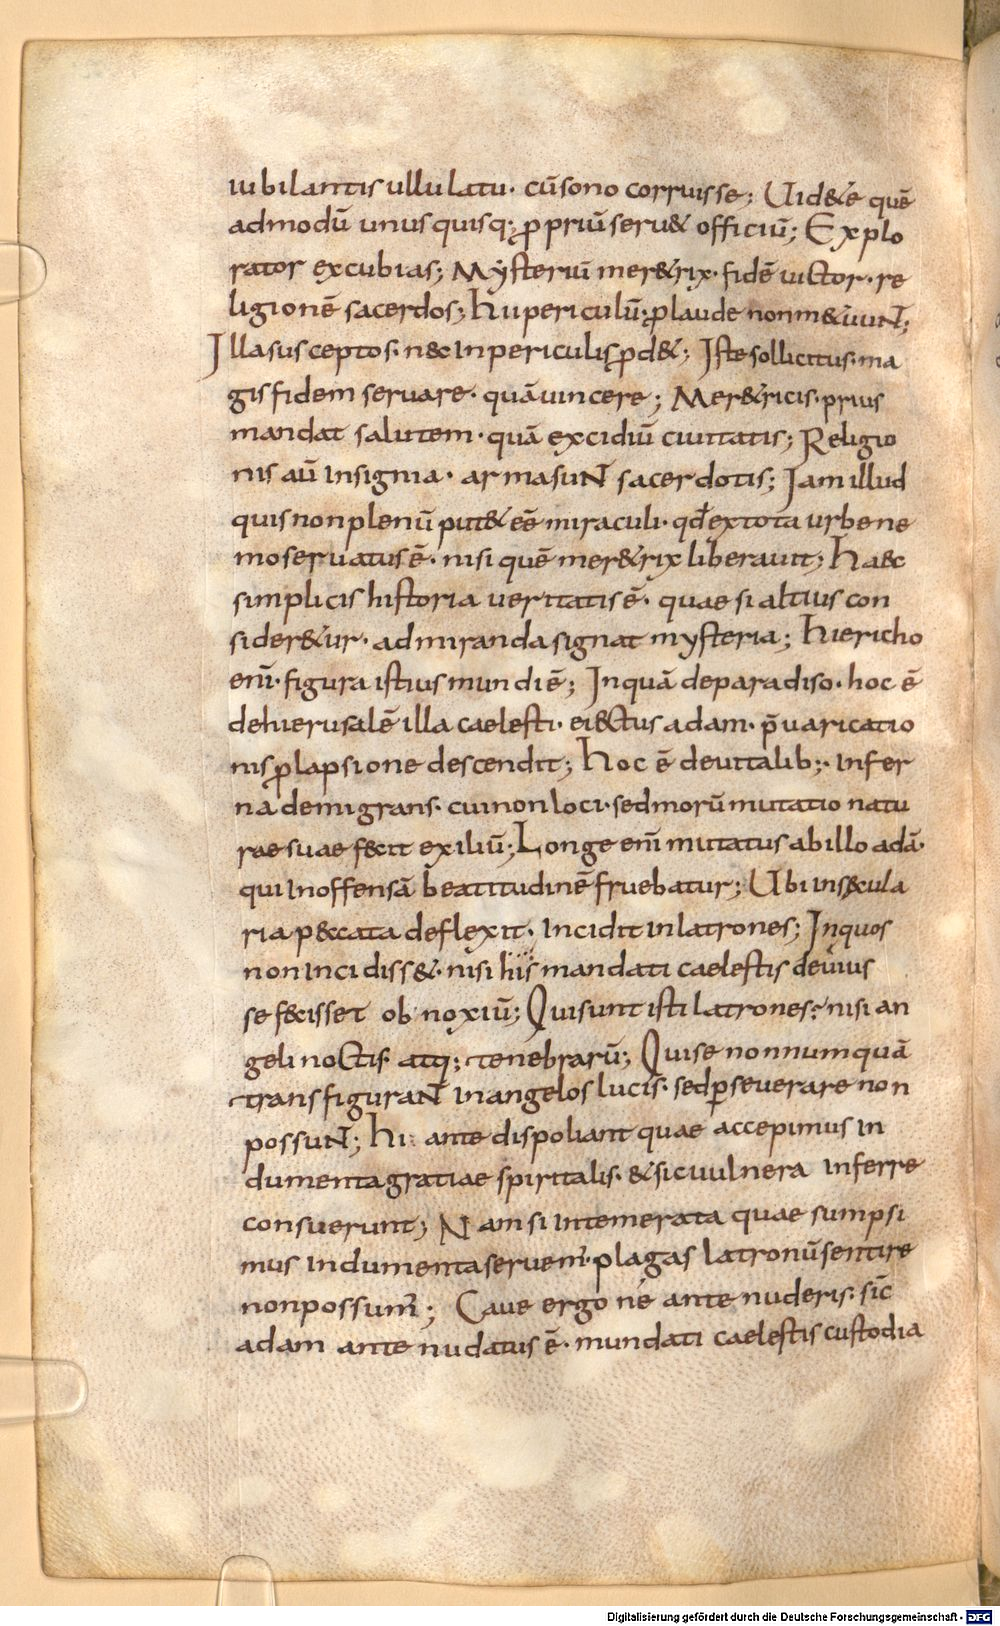 iubilantis ullulatu· cū sono corruisse; Uid&e quē
admodū unus quisq; ꝓpriū seru& officiū; Explo
rator excubias; Mẏsteriū mer&rix· fidē uictor· re
ligionē sacerdos; hii periculū; ꝓ laude non m&uunt;
Illa susceptos· nec in periculis ꝓd&; Iste sollicitus· ma
gis fidem seruare· quā uincere; Mer&ricis· prius
mandat salutem· quā excidiū ciuitatis; Religio
nis aū insignia· arma sunt sacerdotis; Iam illud
quis non plenū put& eē miraculi· qđ ex tota urbe ne
mo seruatus ē· nisi quē mer&rix liberauit; haec
simplicis historia ueritatis ē· quae si altius con
sider&ur· admiranda signat mysteria; hiericho
enī· figura istius mundi ē; In quā de paradiso· hoc ē
de hierusalē illa caelesti· eiectus adam· p̄uaricatio
nis ꝓlapsione descendit; hoc ē de uitalib;· infer
na demigrans· cui non loci· sed morū mutatio natu
rae suae fecit exiliū; Longe enī mutatus ab illo adā·
qui inoffensā beatitudinē fruebatur; Ubi in secula
ria peccata deflexit· incidit in latrones; In quos
non incidiss&· nisi his mandati caelestis deuius
se fecisset obnoxiū; Qui sunt isti latrones? nisi an
geli noctis· atq; tenebrarū; Qui se nonnumquā
transfigurant in angelos lucis· sed ꝑseuerare non
possunt; hi ante dispoliant quae accepimus in
dumenta gratiae spiritalis· & sic uulnera inferre
consuerunt; Nam si intemerata quae sumpsi
mus indumenta seruem̄· plagas latronū sentire
non possum̄; Caue ergo né ante nuderis· sic̄
adam ante nudatus ē· mundati caelestis custodia
Digitalisierung gefördert durch die Deutsche Forschungsgemeinschaft - DFG